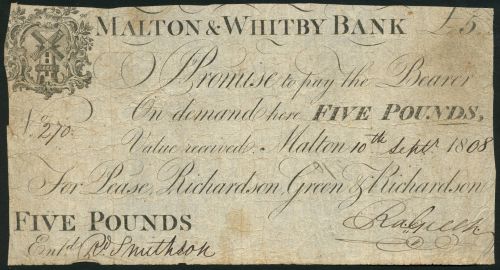 MALTON & WHITBY BANK £5
I Promise to pay the Bearer
On demand here FIVE POUNDS,
No. 270. Value received. Malton 10th Sept. 1808
For Pease, Richardson, Green & Richardson
FIVE POUNDS
Entd. Smithson